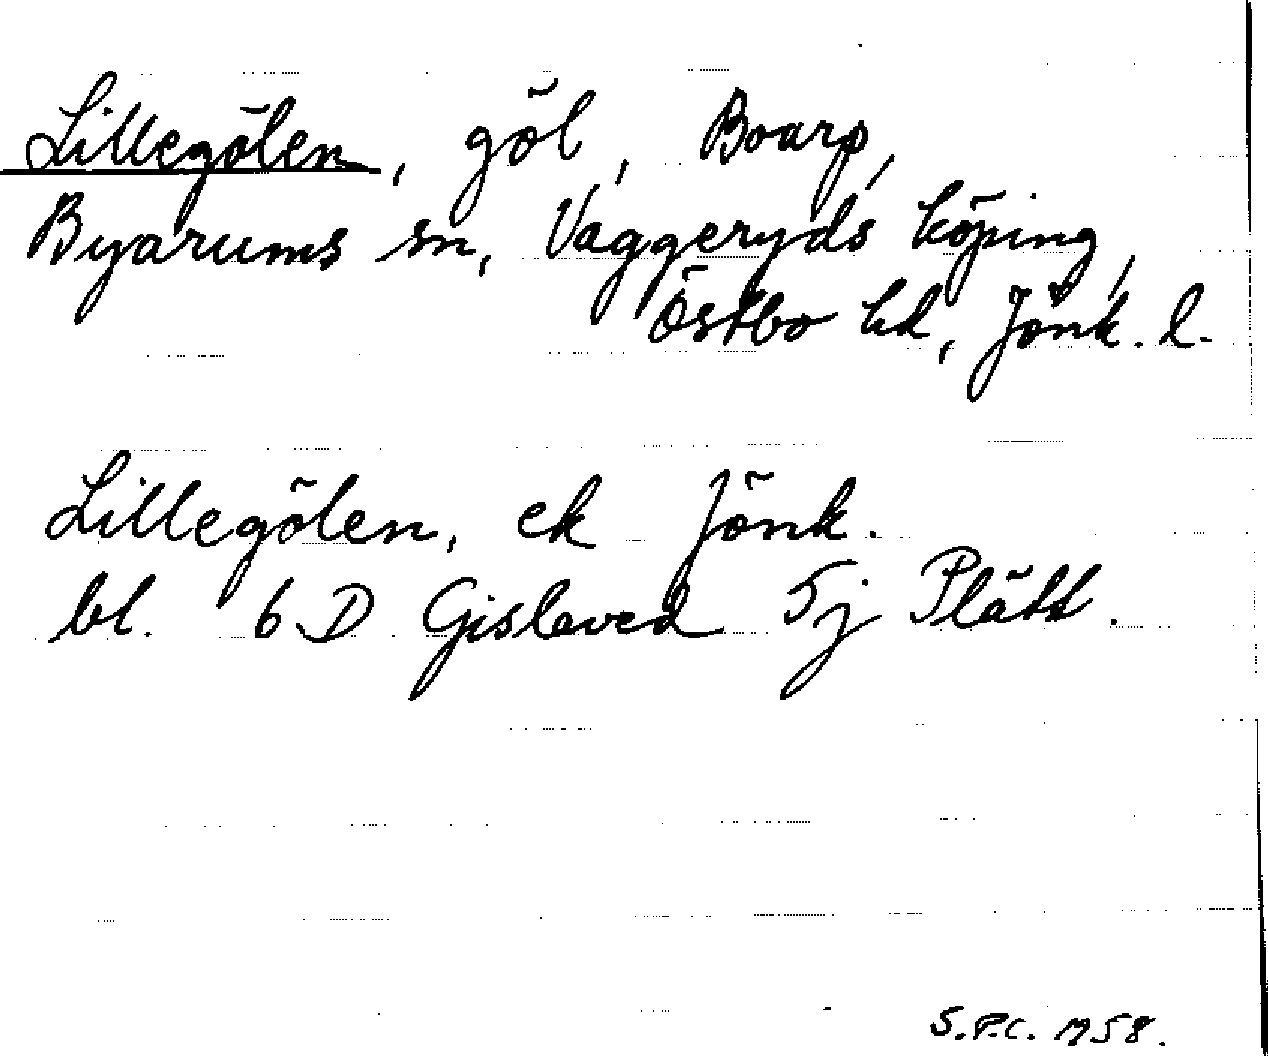 Lillegölen, göl, Boarp,
Byarums sn, Vaggeryds köping,
Östbo hd, Jönk. l.
Lillegölen, ek Jönk.
bl. 6 D Gislaved 5j Plätt.
S.P.C. 1958.